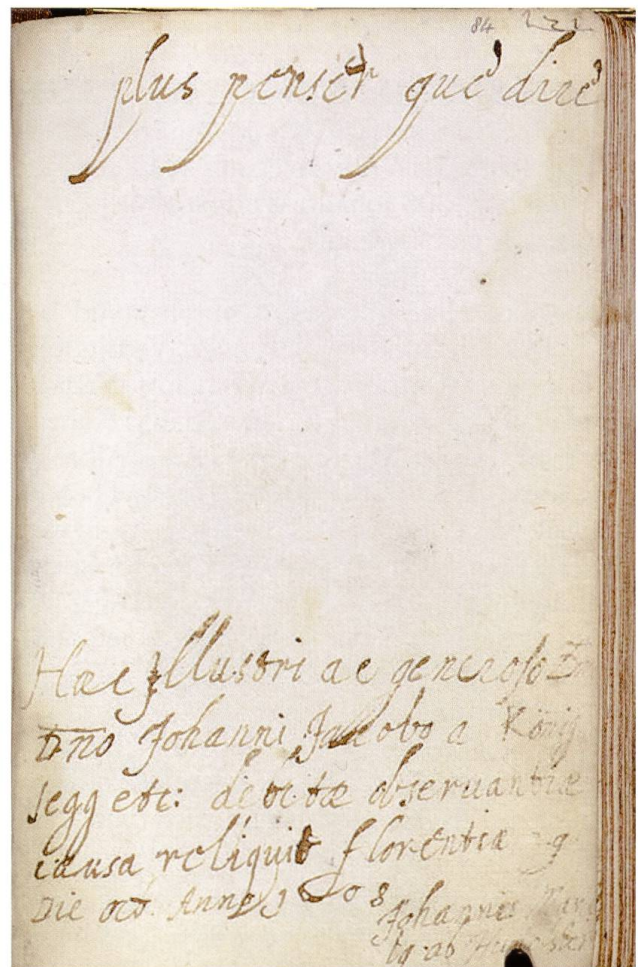 84 221
plus penser que dire
Hæc Jllustri ac generoso
Dno Johanni Jacobo a König
segg etc: debitæ observantiæ
causa reliquit florentiæ 29
Die oct. Anno 1608
Johannes
ab